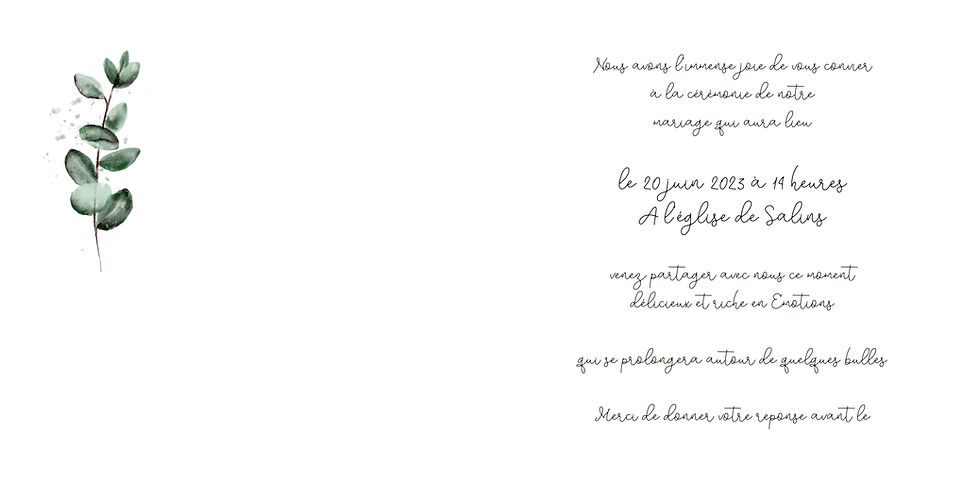 Nous avons l'immense joie de vous convier
à la cérémonie de notre
mariage qui aura lieu
le 20 juin 2023 à 14 heures
A l'église de Salins
venez partager avec nous ce moment
délicieux et riche en Emotions
qui se prolongera autour de quelques bulles
Merci de donner votre reponse avant le